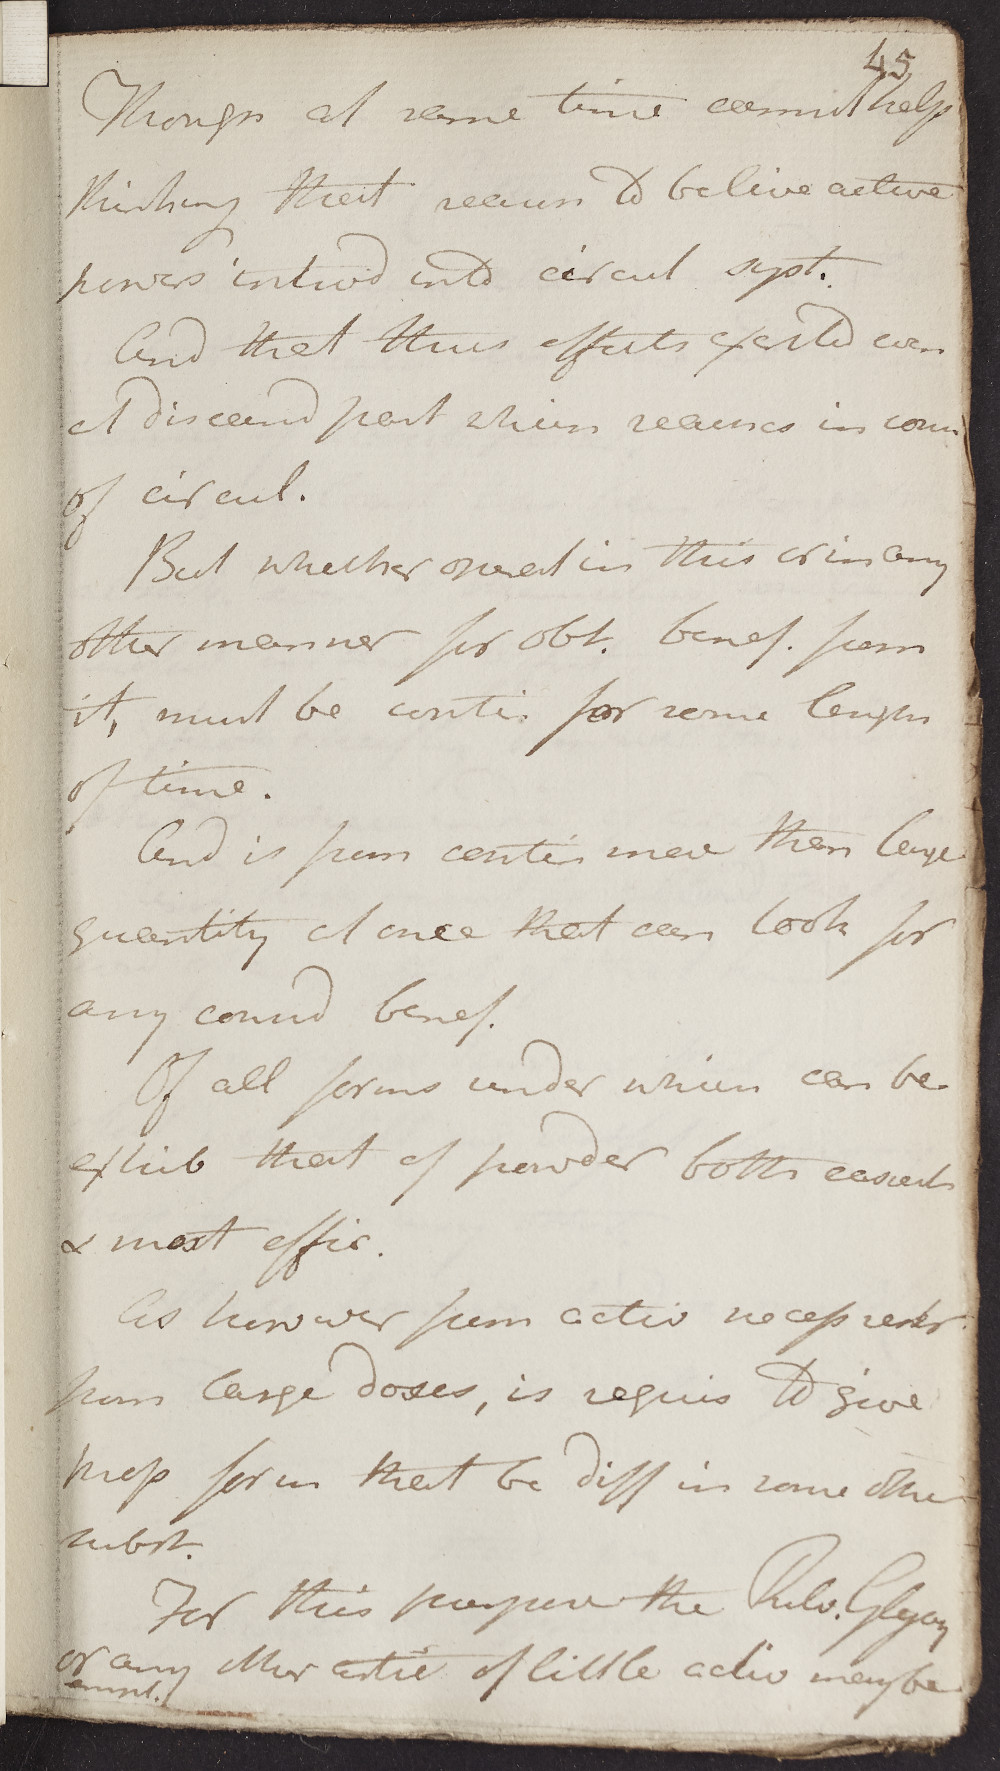 45
Though at same time cannot help
thinking that reason to belive active
powers introd into circul syst.
And that thus effects exerted even
at diseasd part when reaches in cour
of circul.
But whether operat in this or in any
other manner for obt. benef. from
it, must be contin for some length
of time.
And is from contin more than large
quantity at once that can look for
any consid benef.
Of all forms under which can be
exhib that of powder both easiest
& most effic.
As however from activ necess refer
from large doses, is requis to give
in form that be diff in some other
subst.
For this purpose the Pulv. Glycyrr
or any other artic of little activ may be
empl.